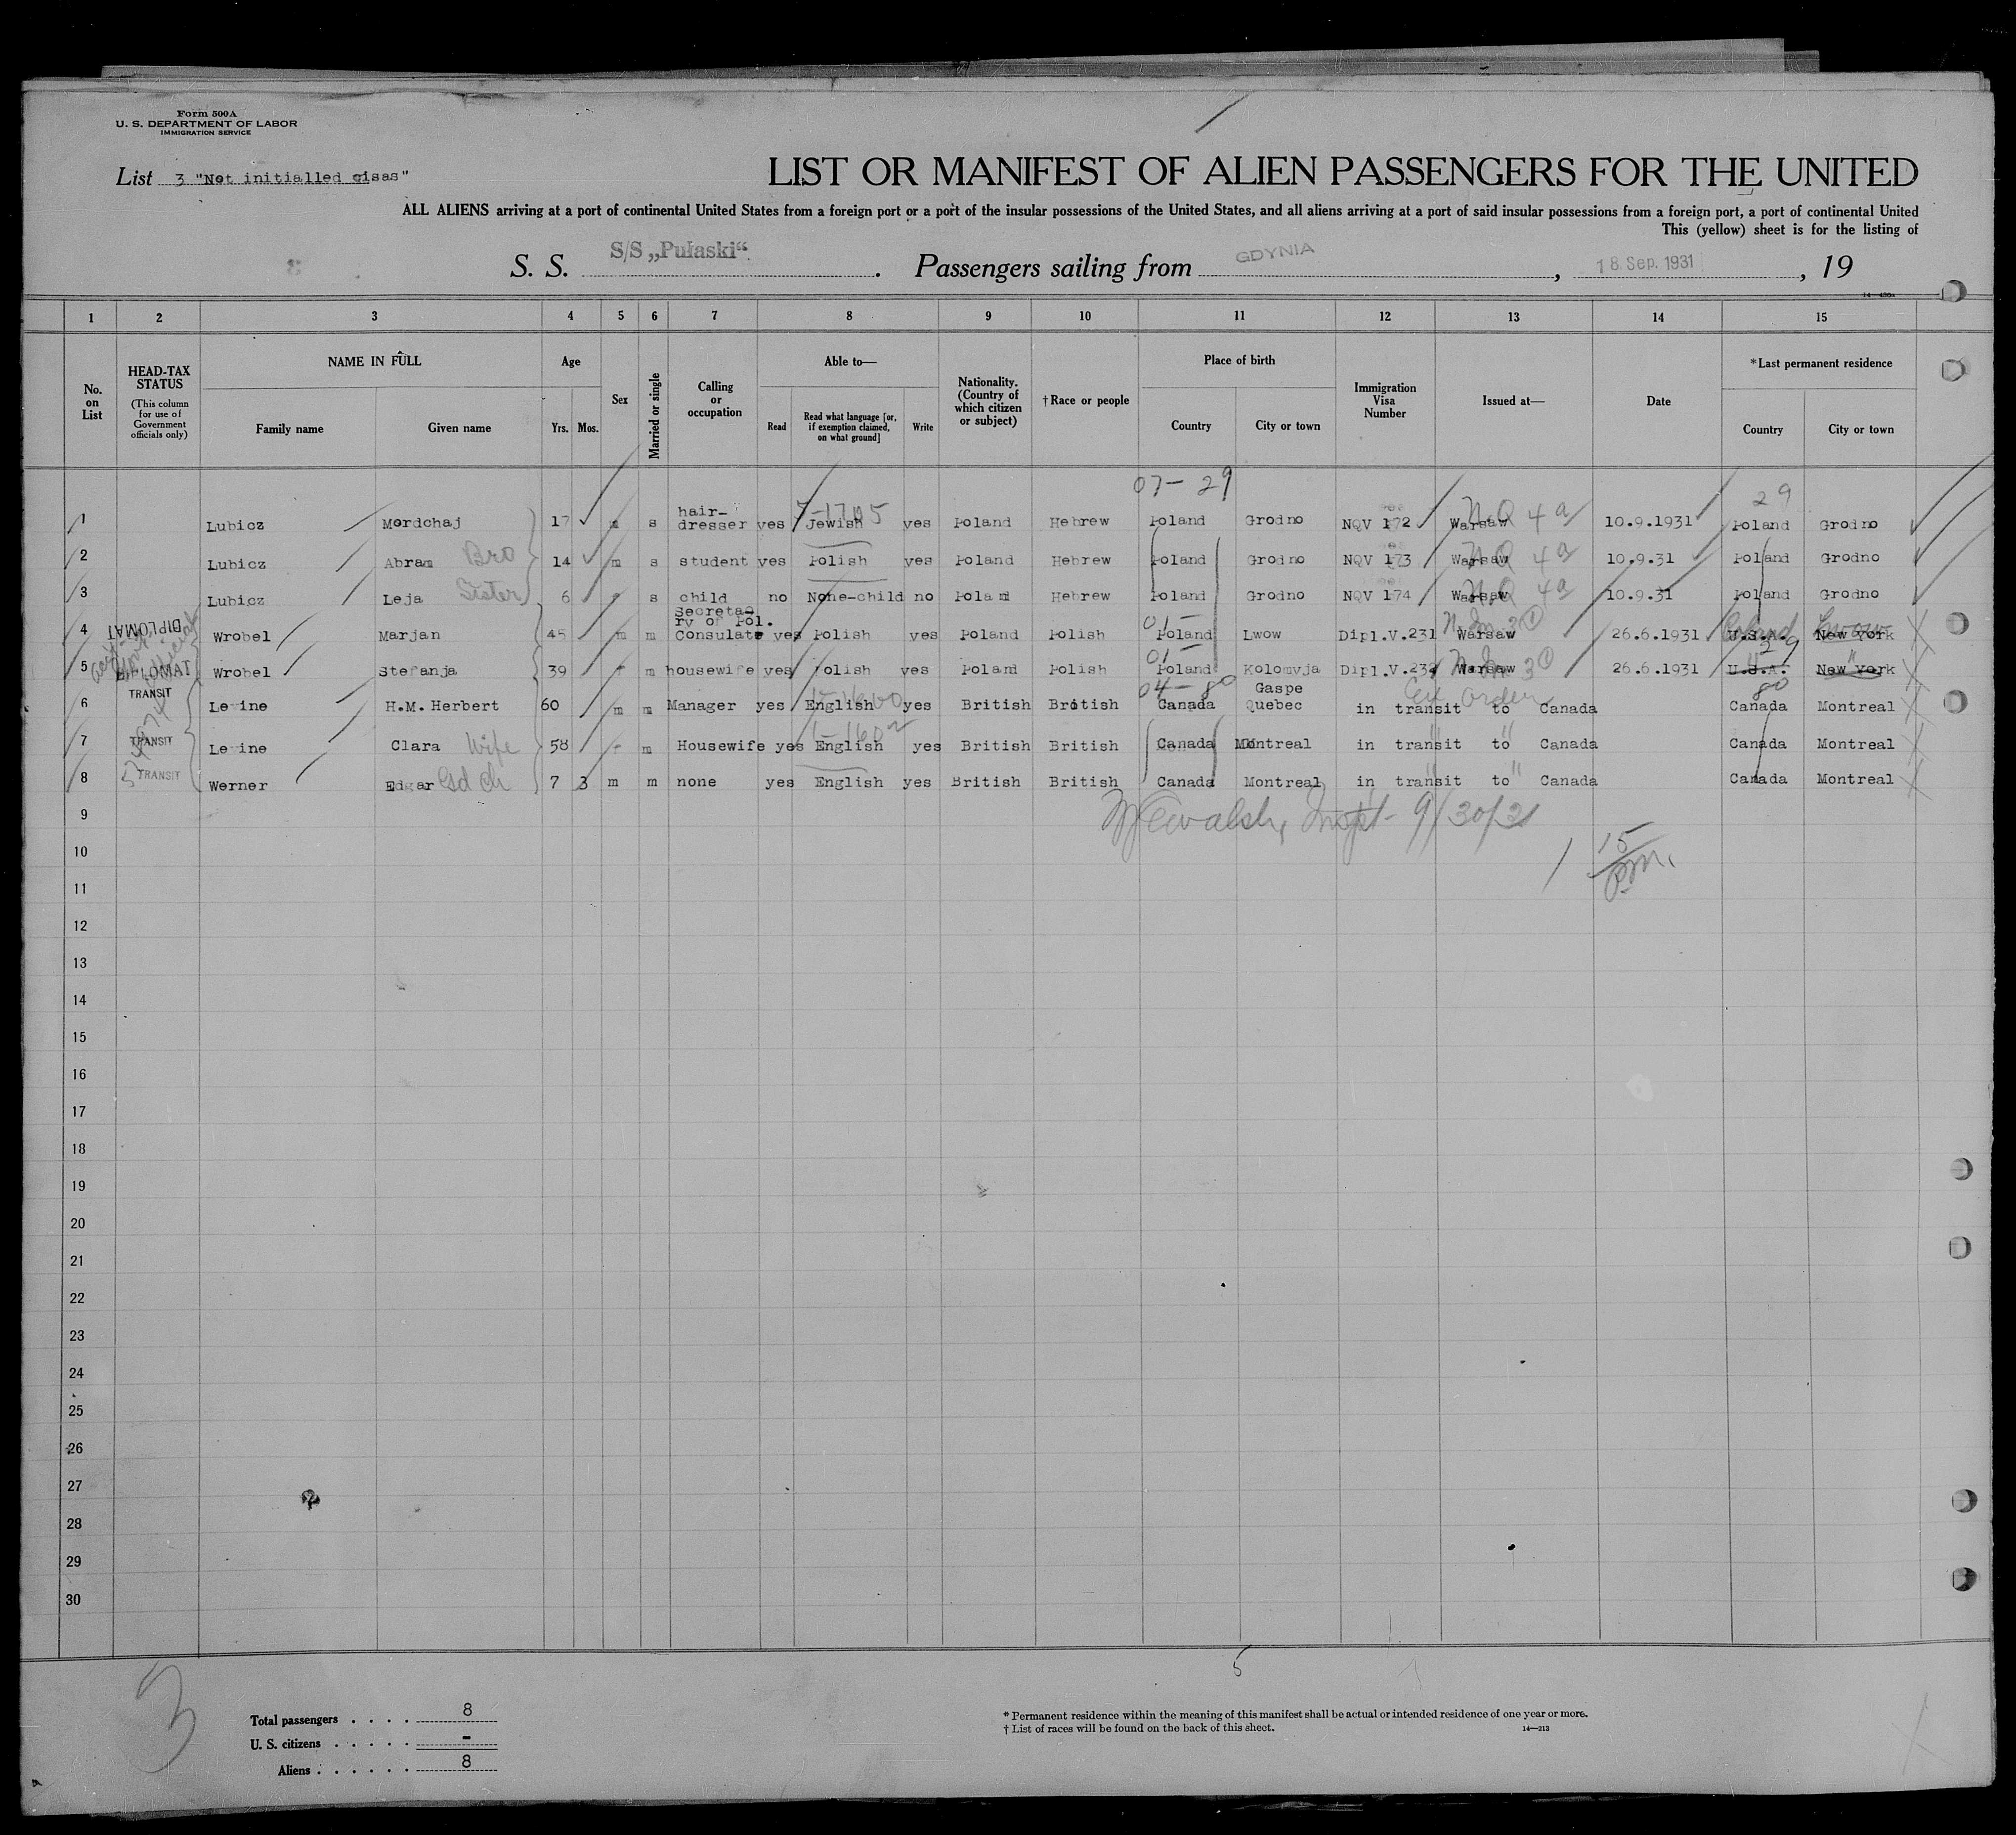 Form 500A
U. S. DEPARTMENT OF LABOR
IMMIGRATION SERVICE
List 3 "Not initialled visas"
LIST OR MANIFEST OF ALIEN PASSENGERS FOR THE UNITED
ALL ALIENS arriving at a port of continental United States from a foreign port or a port of the insular possessions of the United States, and all aliens arriving at a port of said insular possessions from a foreign port, a port of continental United
This (yellow) sheet is for the listing of
S. S. S/S „Pułaski“. Passengers sailing from GDYNIA, 18. Sep. 1931, 19
14—430a
1 2 3 4 5 6 7 8 9 10 11 12 13 14 15
No. on List
HEAD-TAX STATUS (This column for use of Government officials only)
NAME IN FULL Family name Given name
Age Yrs. Mos.
Sex
Married or single
Calling or occupation
Able to— Read Read what language [or, if exemption claimed, on what ground] Write
Nationality. (Country of which citizen or subject)
† Race or people
Place of birth Country City or town
Immigration Visa Number
Issued at—
Date
*Last permanent residence Country City or town
07-29 29
1 Lubicz Mordchaj 17 m s hair-dresser yes Jewish yes Poland Hebrew Poland Grodno NQV 172 Warsaw NQ 4a 10.9.1931 Poland Grodno
2 Lubicz Abram Bro 14 m s student yes Polish yes Poland Hebrew Poland Grodno NQV 173 Warsaw NQ 4a 10.9.31 Poland Grodno
3 Lubicz Leja Sister 6 f s child no None-child no Poland Hebrew Poland Grodno NQV 174 Warsaw NQ 4a 10.9.31 Poland Grodno
4 DIPLOMAT Wrobel Marjan 45 m m Secretary of Pol. Consulate yes Polish yes Poland Polish 01- Poland Lwow Dipl.V.231 Warsaw 26.6.1931 U.S.A. Poland New York Lwow
5 DIPLOMAT Wrobel Stefanja 39 f m housewife yes Polish yes Poland Polish 01- Poland Kolomyja Dipl.V.232 Warsaw 26.6.1931 29 U.S.A. New York
6 TRANSIT Levine H.M. Herbert 60 m m Manager yes English yes British British 04-80 Canada Gaspe Quebec in transit to Canada Ex order 80 Canada Montreal
7 TRANSIT Levine Clara Wife 58 f m Housewife yes English yes British British Canada Montreal in transit to Canada Canada Montreal
8 TRANSIT Werner Edgar Gd ch 7 3 m m none yes English yes British British Canada Montreal in transit to Canada Canada Montreal
9 Walsh, Inspt 9/30/31
10 1 15 p.m.
11
12
13
14
15
16
17
18
19
20
21
22
23
24
25
26
27
28
29
30
5
3
Total passengers . . . . 8
U. S. citizens . . . . . -
Aliens . . . . . . 8
* Permanent residence within the meaning of this manifest shall be actual or intended residence of one year or more.
† List of races will be found on the back of this sheet. 14—213